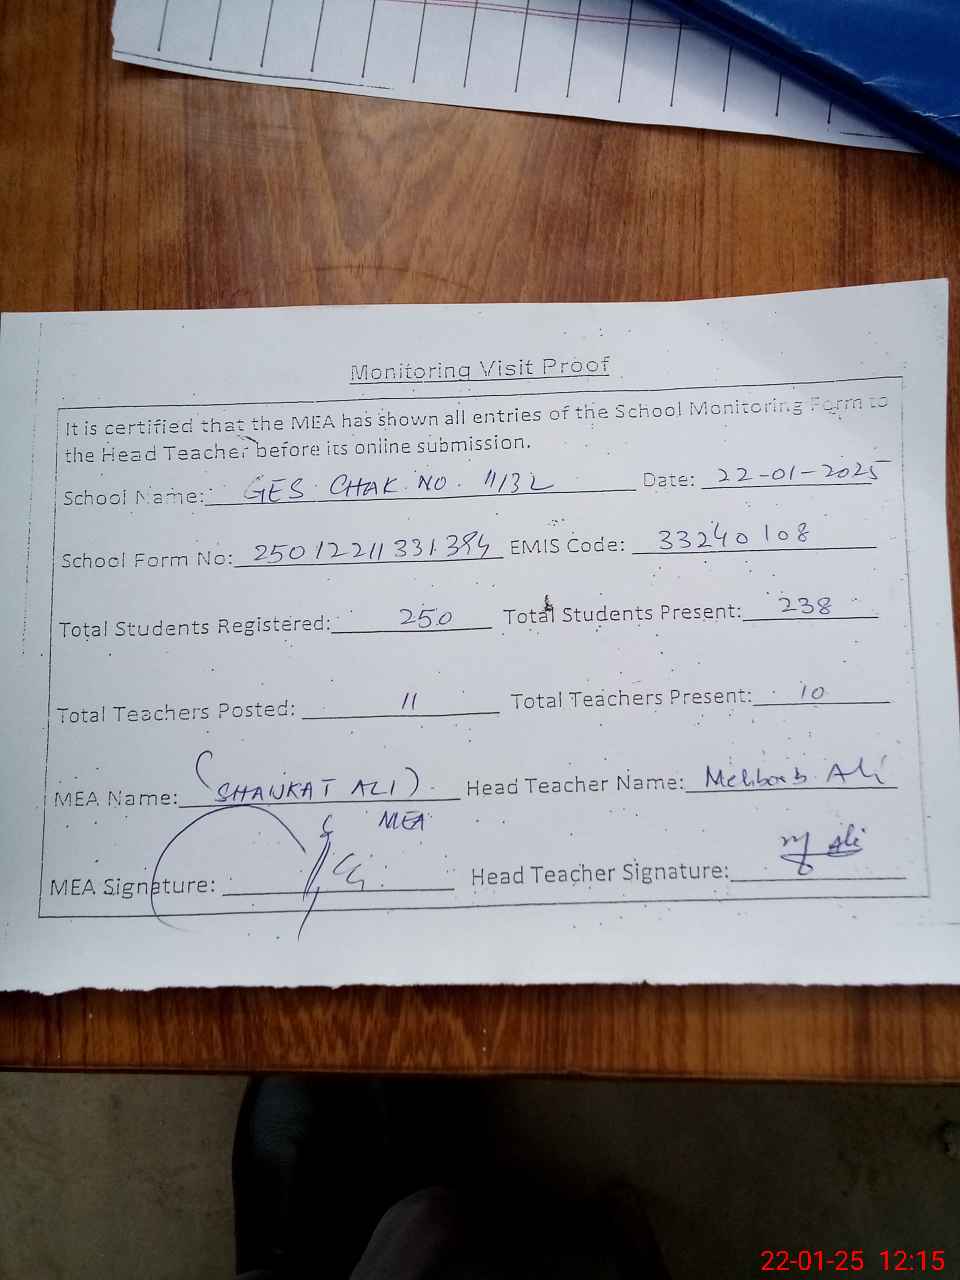 Monitoring Visit Proof
It is certified that the MEA has shown all entries of the School Monitoring Form to
the Head Teacher before its online submission.
School Name: GES CHAK NO. 11/32 Date: 22-01-2025
School Form No: 25012211331384 EMIS Code: 33240108
Total Students Registered: 250 Total Students Present: 238
Total Teachers Posted: 11 Total Teachers Present: 10
MEA Name: (SHAUKAT ALI) Head Teacher Name: Mehboob Ali
MEA
MEA Signature: Head Teacher Signature: M Ali
22-01-25 12:15